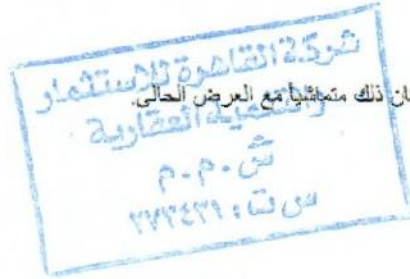 ان ذلك متماشياً مع العرض الحالى.
شركة القاهرة للاستثمار
والتنمية العقارية
ش.م.م
س ت: ٢٧٢٤٣١